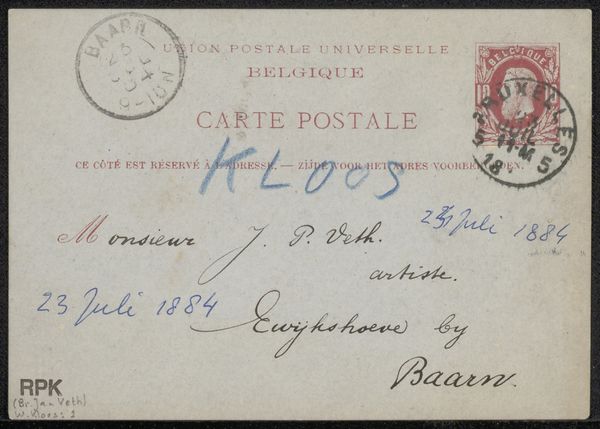 BAARN
UNION POSTALE UNIVERSELLE
BELGIQUE
BELGIQUE
CARTE POSTALE
BRUXELLES
5 5
CE CÔTÉ EST RÉSERVÉ À L'ADRESSE. — ZIJDE VOOR HET ADRES VOORBEHOUDEN.
KLOOS
Monsieur J. P. Veth.
23 Juli 1884
artiste.
23 Juli 1884
Ewijkshoeve by
Baarn.
RPK
(Br. Jan Veth)
W. Kloos: 1